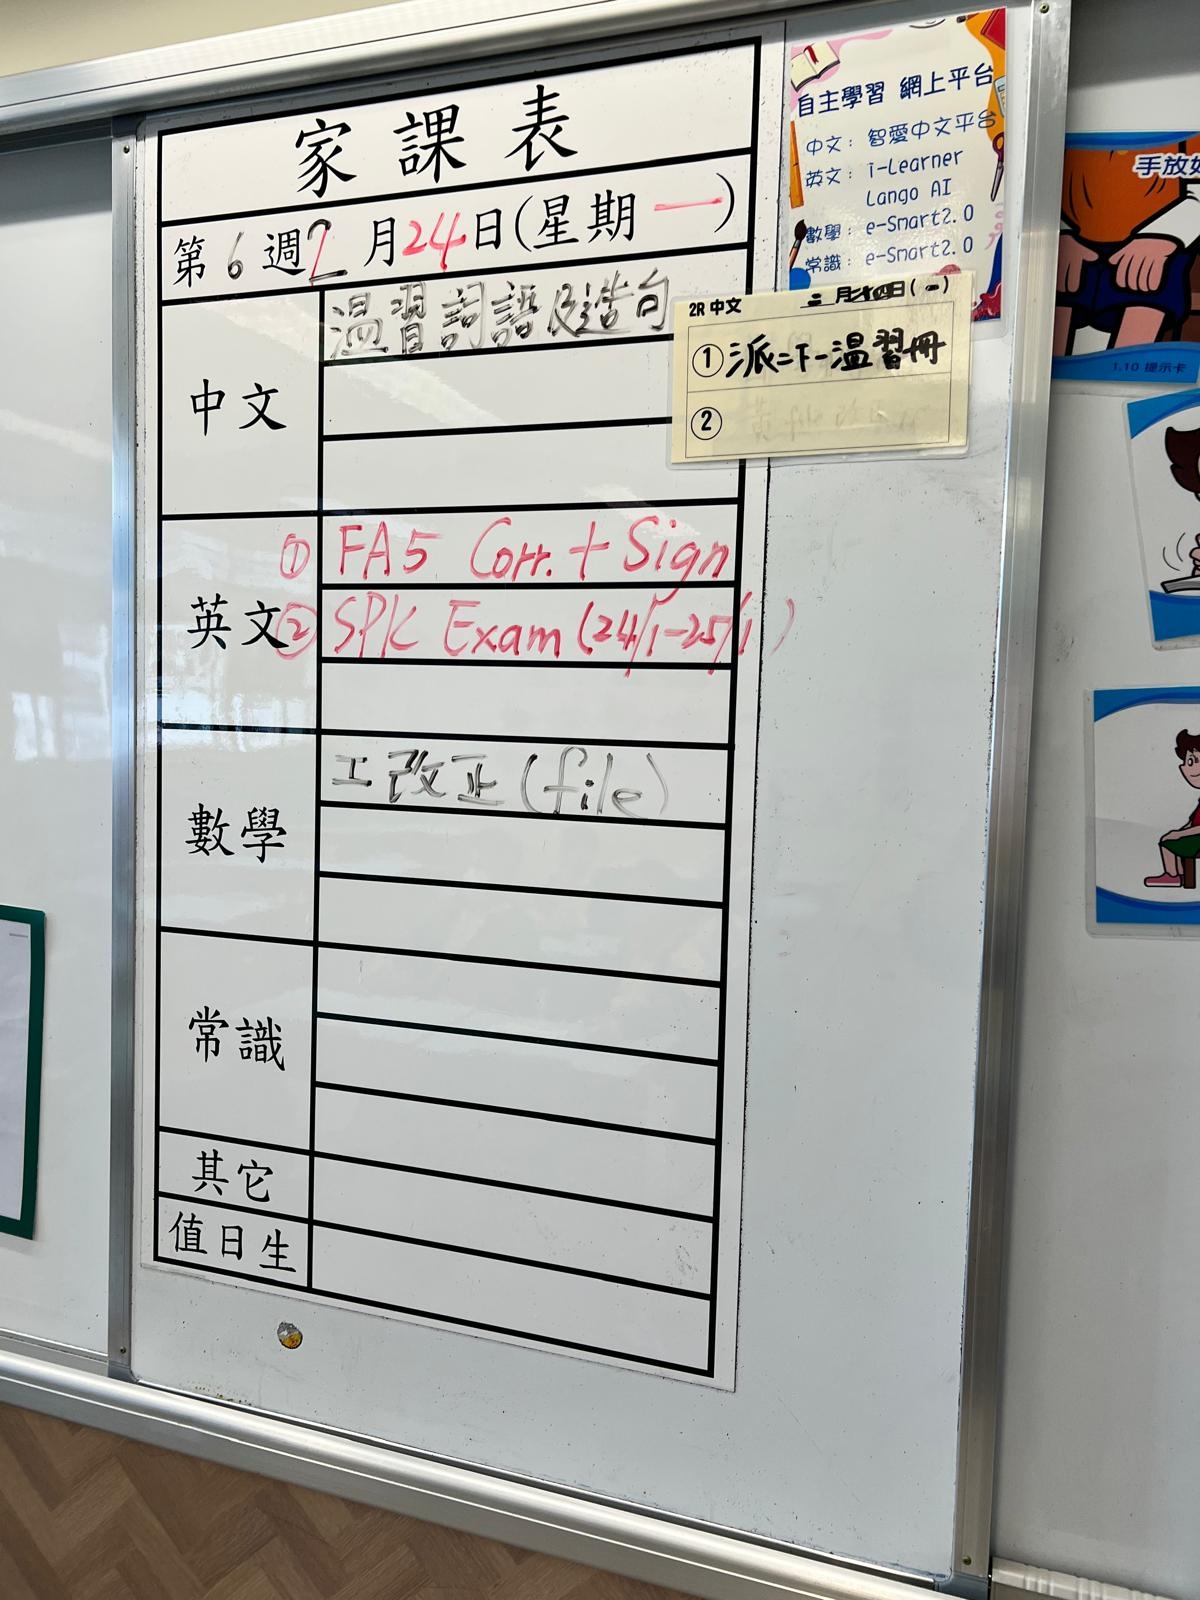 家課表
第6週2月24日(星期一)
中文
温習詞語及造句
英文
① FA5 Corr. + Sign
② SPK Exam (24/1-25/1)
數學
工改正(file)
常識
其它
值日生
自主學習 網上平台
中文：智愛中文平台
英文：i-Learner
Lango AI
數學：e-Smart2.0
常識：e-Smart2.0
2R 中文 二月廿四日(一)
① 派二下一温習冊
②
手放
1.10 提示卡